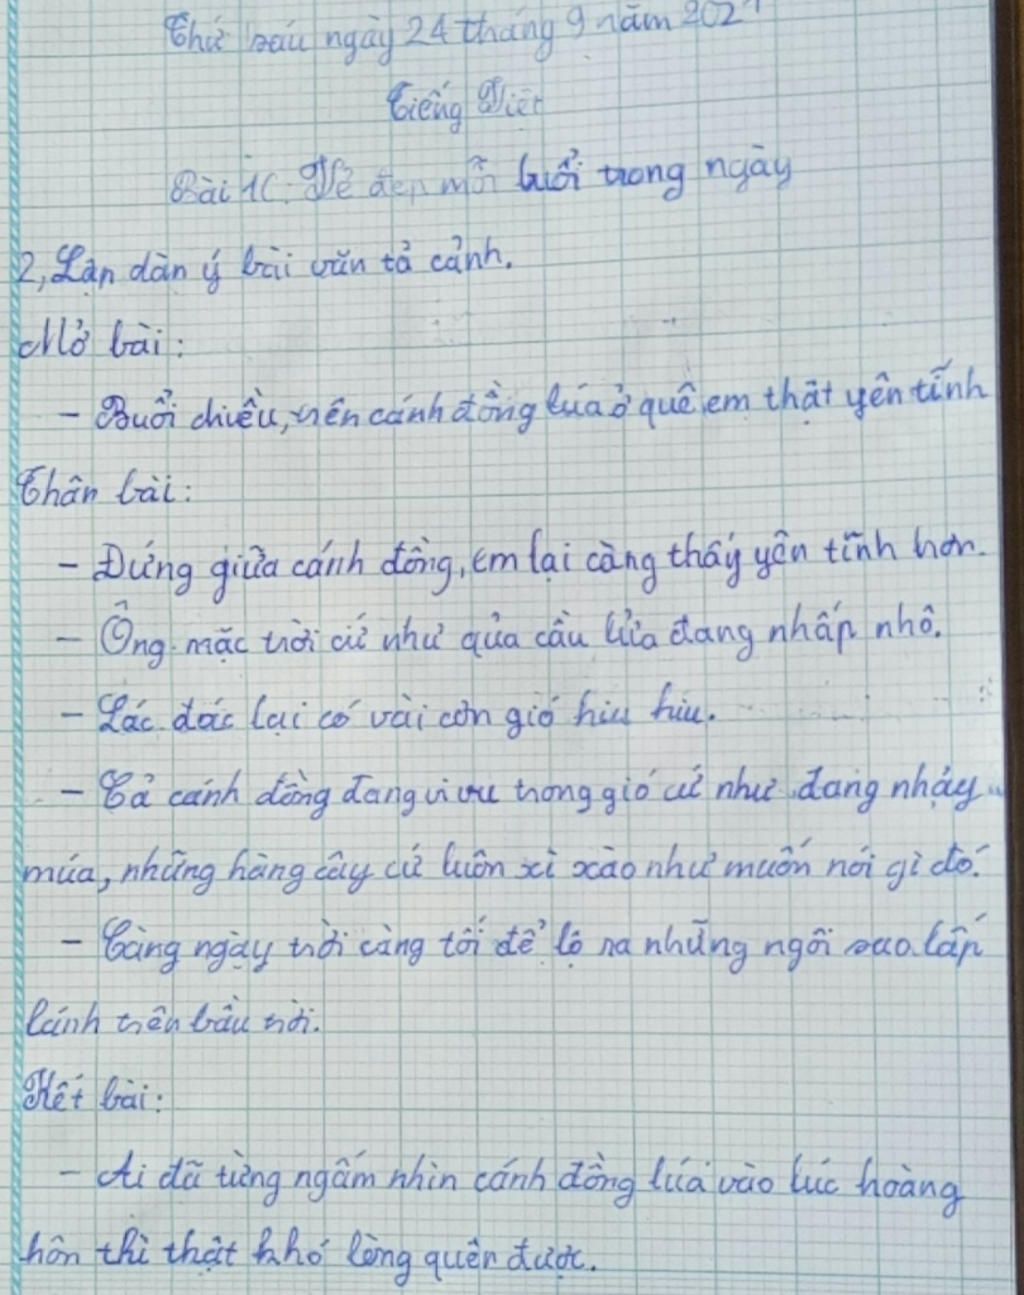 Thứ sáu ngày 24 tháng 9 năm 2021
Tiếng Việt
Bài 1C: Vẻ đẹp mỗi buổi trong ngày
2, Lập dàn ý bài văn tả cảnh.
Mở bài:
- Buổi chiều, trên cánh đồng lúa ở quê em thật yên tĩnh
Thân bài:
- Đứng giữa cánh đồng, em lại càng thấy yên tĩnh hơn.
- Ông mặc trời cứ như qủa cầu lửa đang nhấp nhô.
- Lác đác lại có vài cơn gió hiu hiu.
- Cả cánh đồng đang vi vu trong gió cứ như đang nhảy
múa, những hàng cây cứ luôn xì xào như muốn nói gì đó.
- Càng ngày trời càng tối để lộ ra những ngôi sao lấp
lánh trên bầu trời.
Kết bài:
- Ai đã từng ngắm nhìn cánh đồng lúa vào lúc hoàng
hôn thì thật khó lòng quên được.